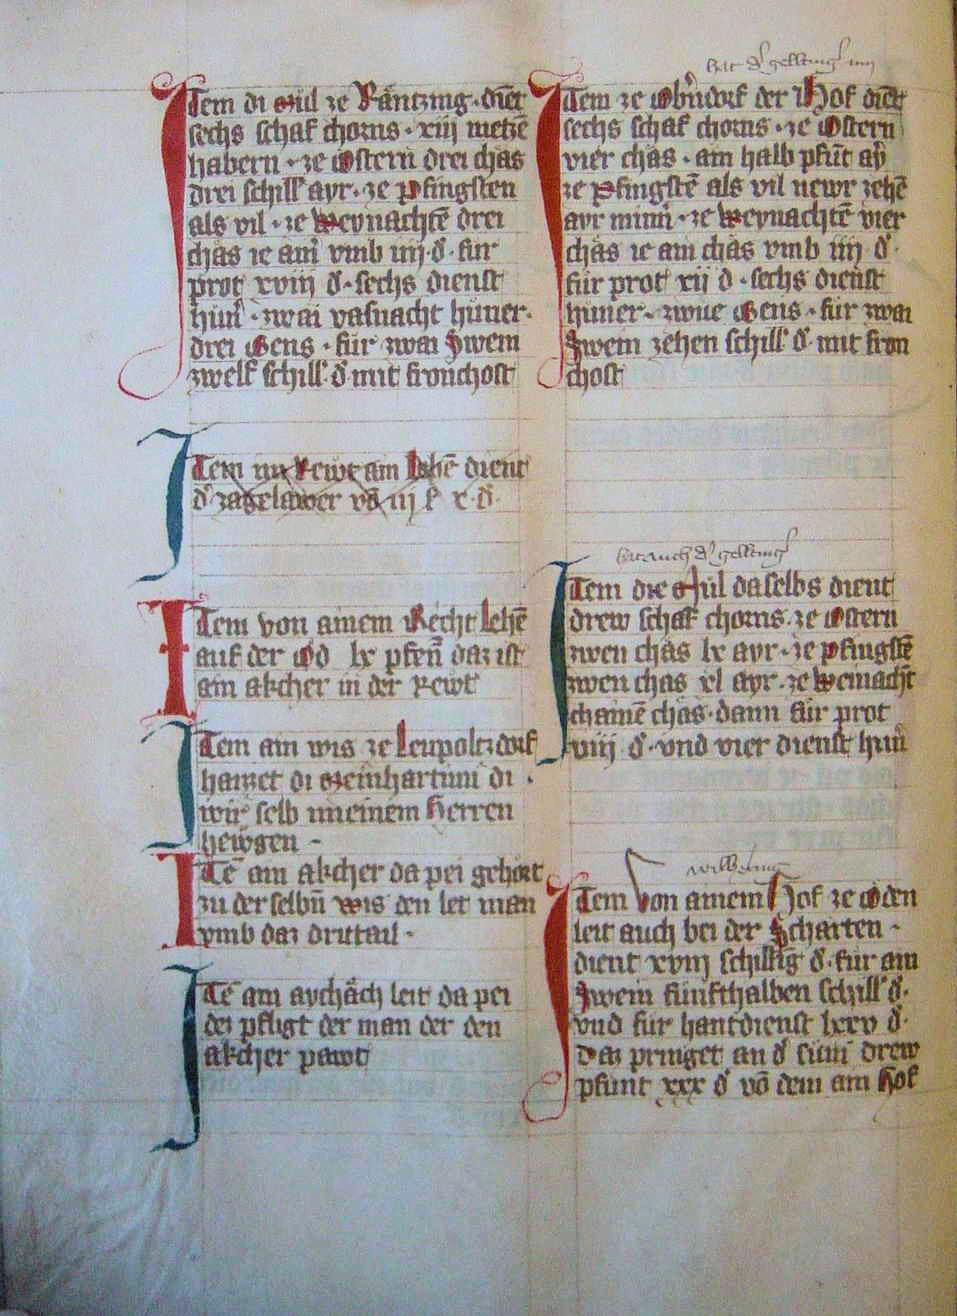 Item di Mül ze Räntzing · dient
sechs schaf chorns · xiij metzē
habern · ze Ostern drei chäs
drei schill ayr · ze Pfingsten
als vil · ze Weynachtē drei
chäs ie ain vmb iiij · d · für
prot xviij d · sechs dienst
hün · zwai vasnacht hüner ·
drei Gens · für zwai Swein
zwelf schill d mit fronchost
Item ain Rewt am Lehē dient
d zagelawer vō iij l x · d
Item von ainem Recht Lehē
auf der Od lx pfeñ daz ist
ain akcher in der Rewt
Item ain wis ze Leupoltzdorf
hawet di Meinhartinn di ·
wir selb meinem Herren
hewgen ·
Itē ain akcher da pei gehört
zu der selbñ wis den let man
vmb daz drittail ·
Itē ain aychäch leit da pei
dez pfligt der man der den
akcher pawt
hat d gelting
Item ze Obndorf der Hof dient
sechs schaf chorns · ze Ostern
vier chäs · ain halb pfūt ay
ze Pfingstē als vil newr zehē
ayr minn · ze Weynachtē vier
chäs ie ain chäs vmb iiij d ·
für prot xij d · sechs dienst
hüner · zwue Gens · für zwai
Swein zehen schill d · mit fron
chost
hat auch d gelting
Item die Mül daselbs dient
drew schaf chorns · ze Ostern
zwen chäs lx ayr · ze pfingstē
zwen chäs xl ayr · ze weinacht
chainē chäs · dann für prot
viij d · vnd vier dienst hün
Item Von ainem Hof ze Oden
leit auch bei der Scharten ·
dient xviij schillig d · für ain
Swein fünfthalben schill d ·
vnd für hantdienst lxxv d ·
Daz pringet an d sum drew
pfunt xxx d vō dem ain Hof